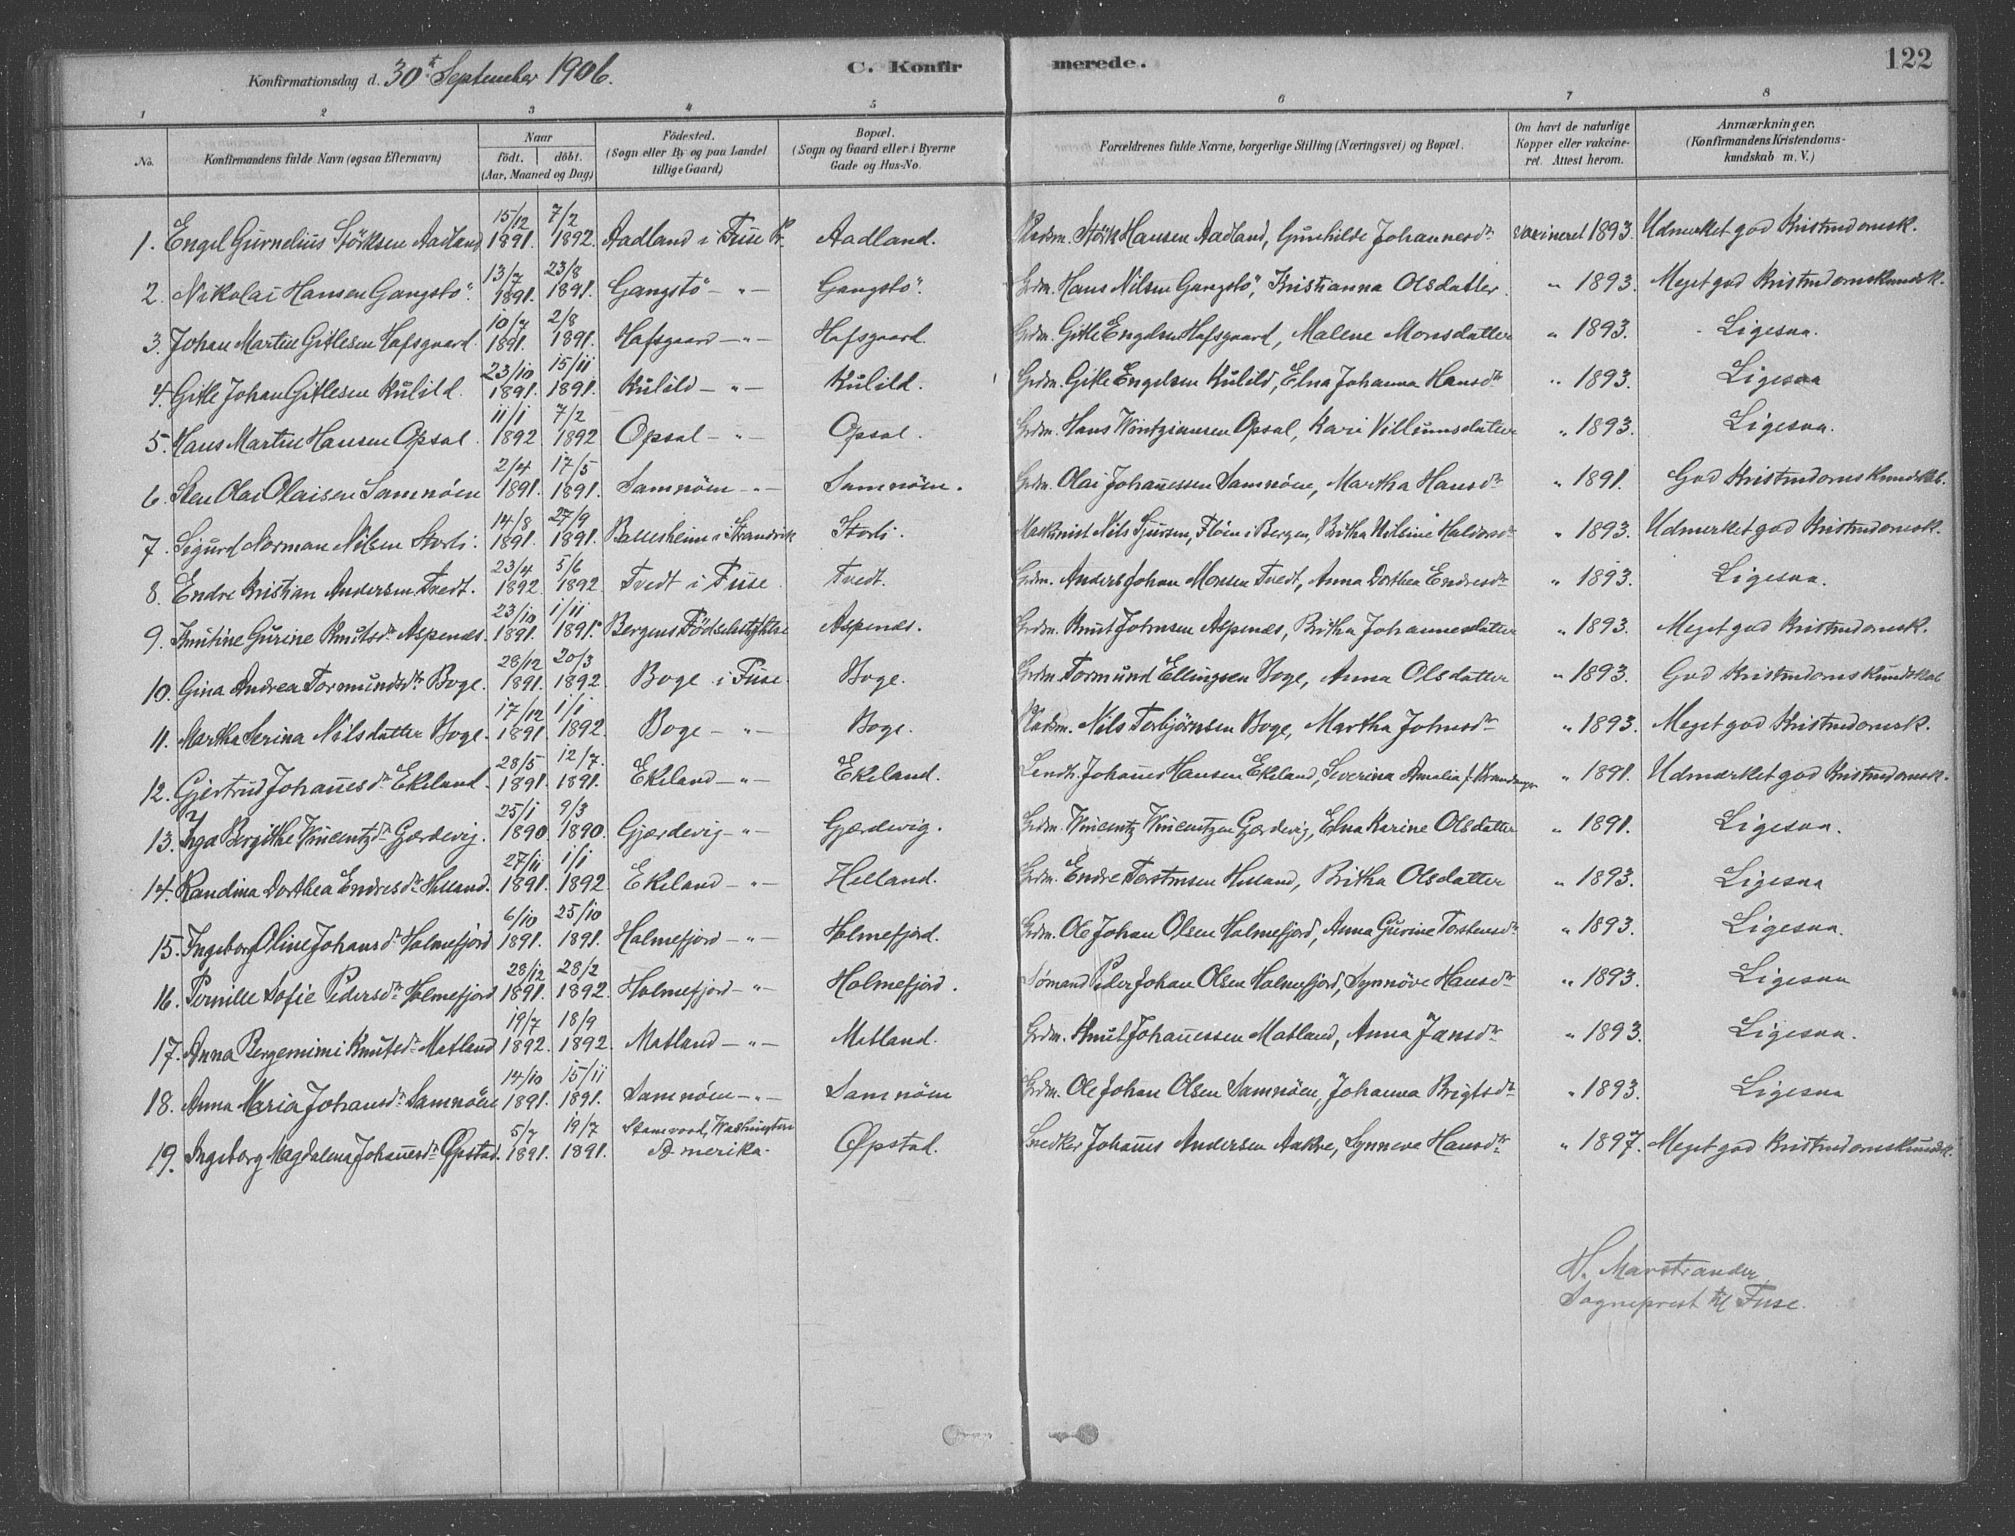 Konfirmationsdag d. 30te September 1906. C. Konfir merede. 122
1 2 3 4 5 6 7 8
No. Konfirmandens fulde Navn (ogsaa Efternavn) Naar født. døbt. (Aar, Maaned og Dag) Fødested. (Sogn eller By og paa Landet tillige Gaard) Bopæl. (Sogn og Gaard eller i Byerne Gade og Hus-No. Forældrenes fulde Navne, borgerlige Stilling (Næringsvei) og Bopæl. Om havt de naturlige Kopper eller vakcineret. Attest herom. Anmærkninger. (Konfirmandens Kristendomskundskab m. V.)
1. Engel Gurnelius Störksen Aadland 15/12 1891. 7/2 1892. Aadland i Fuse Pr. Aadland. Pladsm. Störk Hansen Aadland, Gunhilde Johannesdtr vaxineret 1893. Udmerket god Kristendomsk.
2. Nikolai Hansen Gangstö. 13/7 1891. 23/8 1891. Gangstö - " - Gangstö. Grdm. Hans Nilsen Gangstö, Kristianna Olsdatter. " 1893. Meget god Kristendomskundsk.
3. Johan Martin Gitlesen Hafsgaard. 10/7 1891. 2/8 1891. Hafsgaard - " - Hafsgaard. Grdm. Gitle Engelsen Hafsgaard, Malene Monsdatter " 1893. Ligesaa.
4. Gitle Johan Gitlesen Kulild. 23/10 1891. 15/11 1891. Kulild - " - Kulild. Grdm. Gitle Engelsen Kulild, Elna Johanna Hansdtr " 1893. Ligesaa
5. Hans Martin Hansen Opsal. 11/1 1892 7/2 1892 Opsal - " - Opsal. Grdm. Hans Opsal, Kari Villumsdatter " 1893. Ligesaa.
6. Sten Olai Olaisen Samnöen 2/4 1891. 17/5 1891. Samnöen - " - Samnöen. Grdm. Olai Johanessen Samnöen, Martha Hansdtr " 1891. God Kristendomskundskab.
7. Sigurd Norman Nilsen Storli. 14/8 1891. 27/9 1891. Ballesheim i Strandvik Storli. Maskinist Nils Sjursen, Flöen i Bergen, Britha Nilsine Haldorsdtr " 1893. Udmerket god Kristendomsk.
8. Endre Kristian Andersen Tvedt. 23/4 1892 5/6 1892 Tvedt i Fuse Tvedt. Grdm. Anders Johan Monsen Tvedt, Anna Dorthea Endresdtr " 1893. Ligesaa.
9. Knutine Gurine Knutsdtr Aspenes. 23/10 1891. 1/11 1891. Bergens Födselsstiftelse Aspenes. Grdm. Knut Johnsen Aspenes, Britha Johannesdatter " 1893. Meget god Kristendomsk.
10. Gina Andrea Tormundsdtr Boge. 28/12 1891. 20/3 1892. Boge i Fuse. Boge. Grdm. Tormund Ellingsen Boge, Anna Olsdatter " 1893. God Kristendomskundskab
11. Martha Serina Nilsdatter Boge. 17/12 1891 1/1 1892. Boge - " - Boge. Pladsm. Nils Torbjörnsen Boge, Martha Johnsdtr " 1893. Meget god Kristendomsk.
12. Gjertrud Johanesdtr Ekeland. 28/5 1891. 12/7 1891. Ekeland - " - Ekeland. Lendh. Johanes Hansen Ekeland, Severina Amalia f. " 1891. Udmærket god Kristendomsk.
13. Inga Bergithe Vincentzdtr Gjærdevig. 25/1 1890 9/3 1890. Gjærdevig - " - Gjærdevig. Grdm. Vincentz Vincentzen Gjærdevig, Elna Karine Olsdatter " 1891. Ligesaa.
14. Randina Dorthea Endresdtr Helland. 27/11 1891. 1/1 1892. Ekeland - " - Helland. Grdm. Endre Torstensen Helland, Britha Olsdatter " 1893. Ligesaa
15. Ingeborg Oline Johansdtr Holmefjord 6/10 1891. 25/10 1891. Holmefjord - " - Holmefjord. Grdm. Ole Johan Olsen Holmefjord, Anna Gurine Torstensdtr " 1893. Ligesaa.
16. Pernille Sofie Pedersdtr Holmefjord 28/12 1891. 28/2 1892. Holmefjord - " - Holmefjord. Sömand Peder Johan Olsen Holmefjord, Synnöve Hansdtr " 1893. Ligesaa
17. Anna Bergemimi Knutsdtr Matland 19/7 1892. 18/9 1892. Matland - " - Matland. Grdm. Knut Johanessen Matland, Anna Jansdtr " 1893. Ligesaa.
18. Anna Maria Johansdtr Samnöen 14/10 1891. 15/11 1891. Samnöen - " - Samnöen Grdm. Ole Johan Olsen Samnöen, Johanna Brigtsdtr " 1893. Ligesaa
19. Ingeborg Magdalena Johanesdtr Øpstad. 5/7 1891. 19/7 1891. Stanwood, Washington Amerika. Øpstad. Snedker Johanes Andersen Aakre, Synneve Hansdtr " 1897. Meget god Kristendomskundsk.
H. Marstrander
Sogneprest til Fuse.